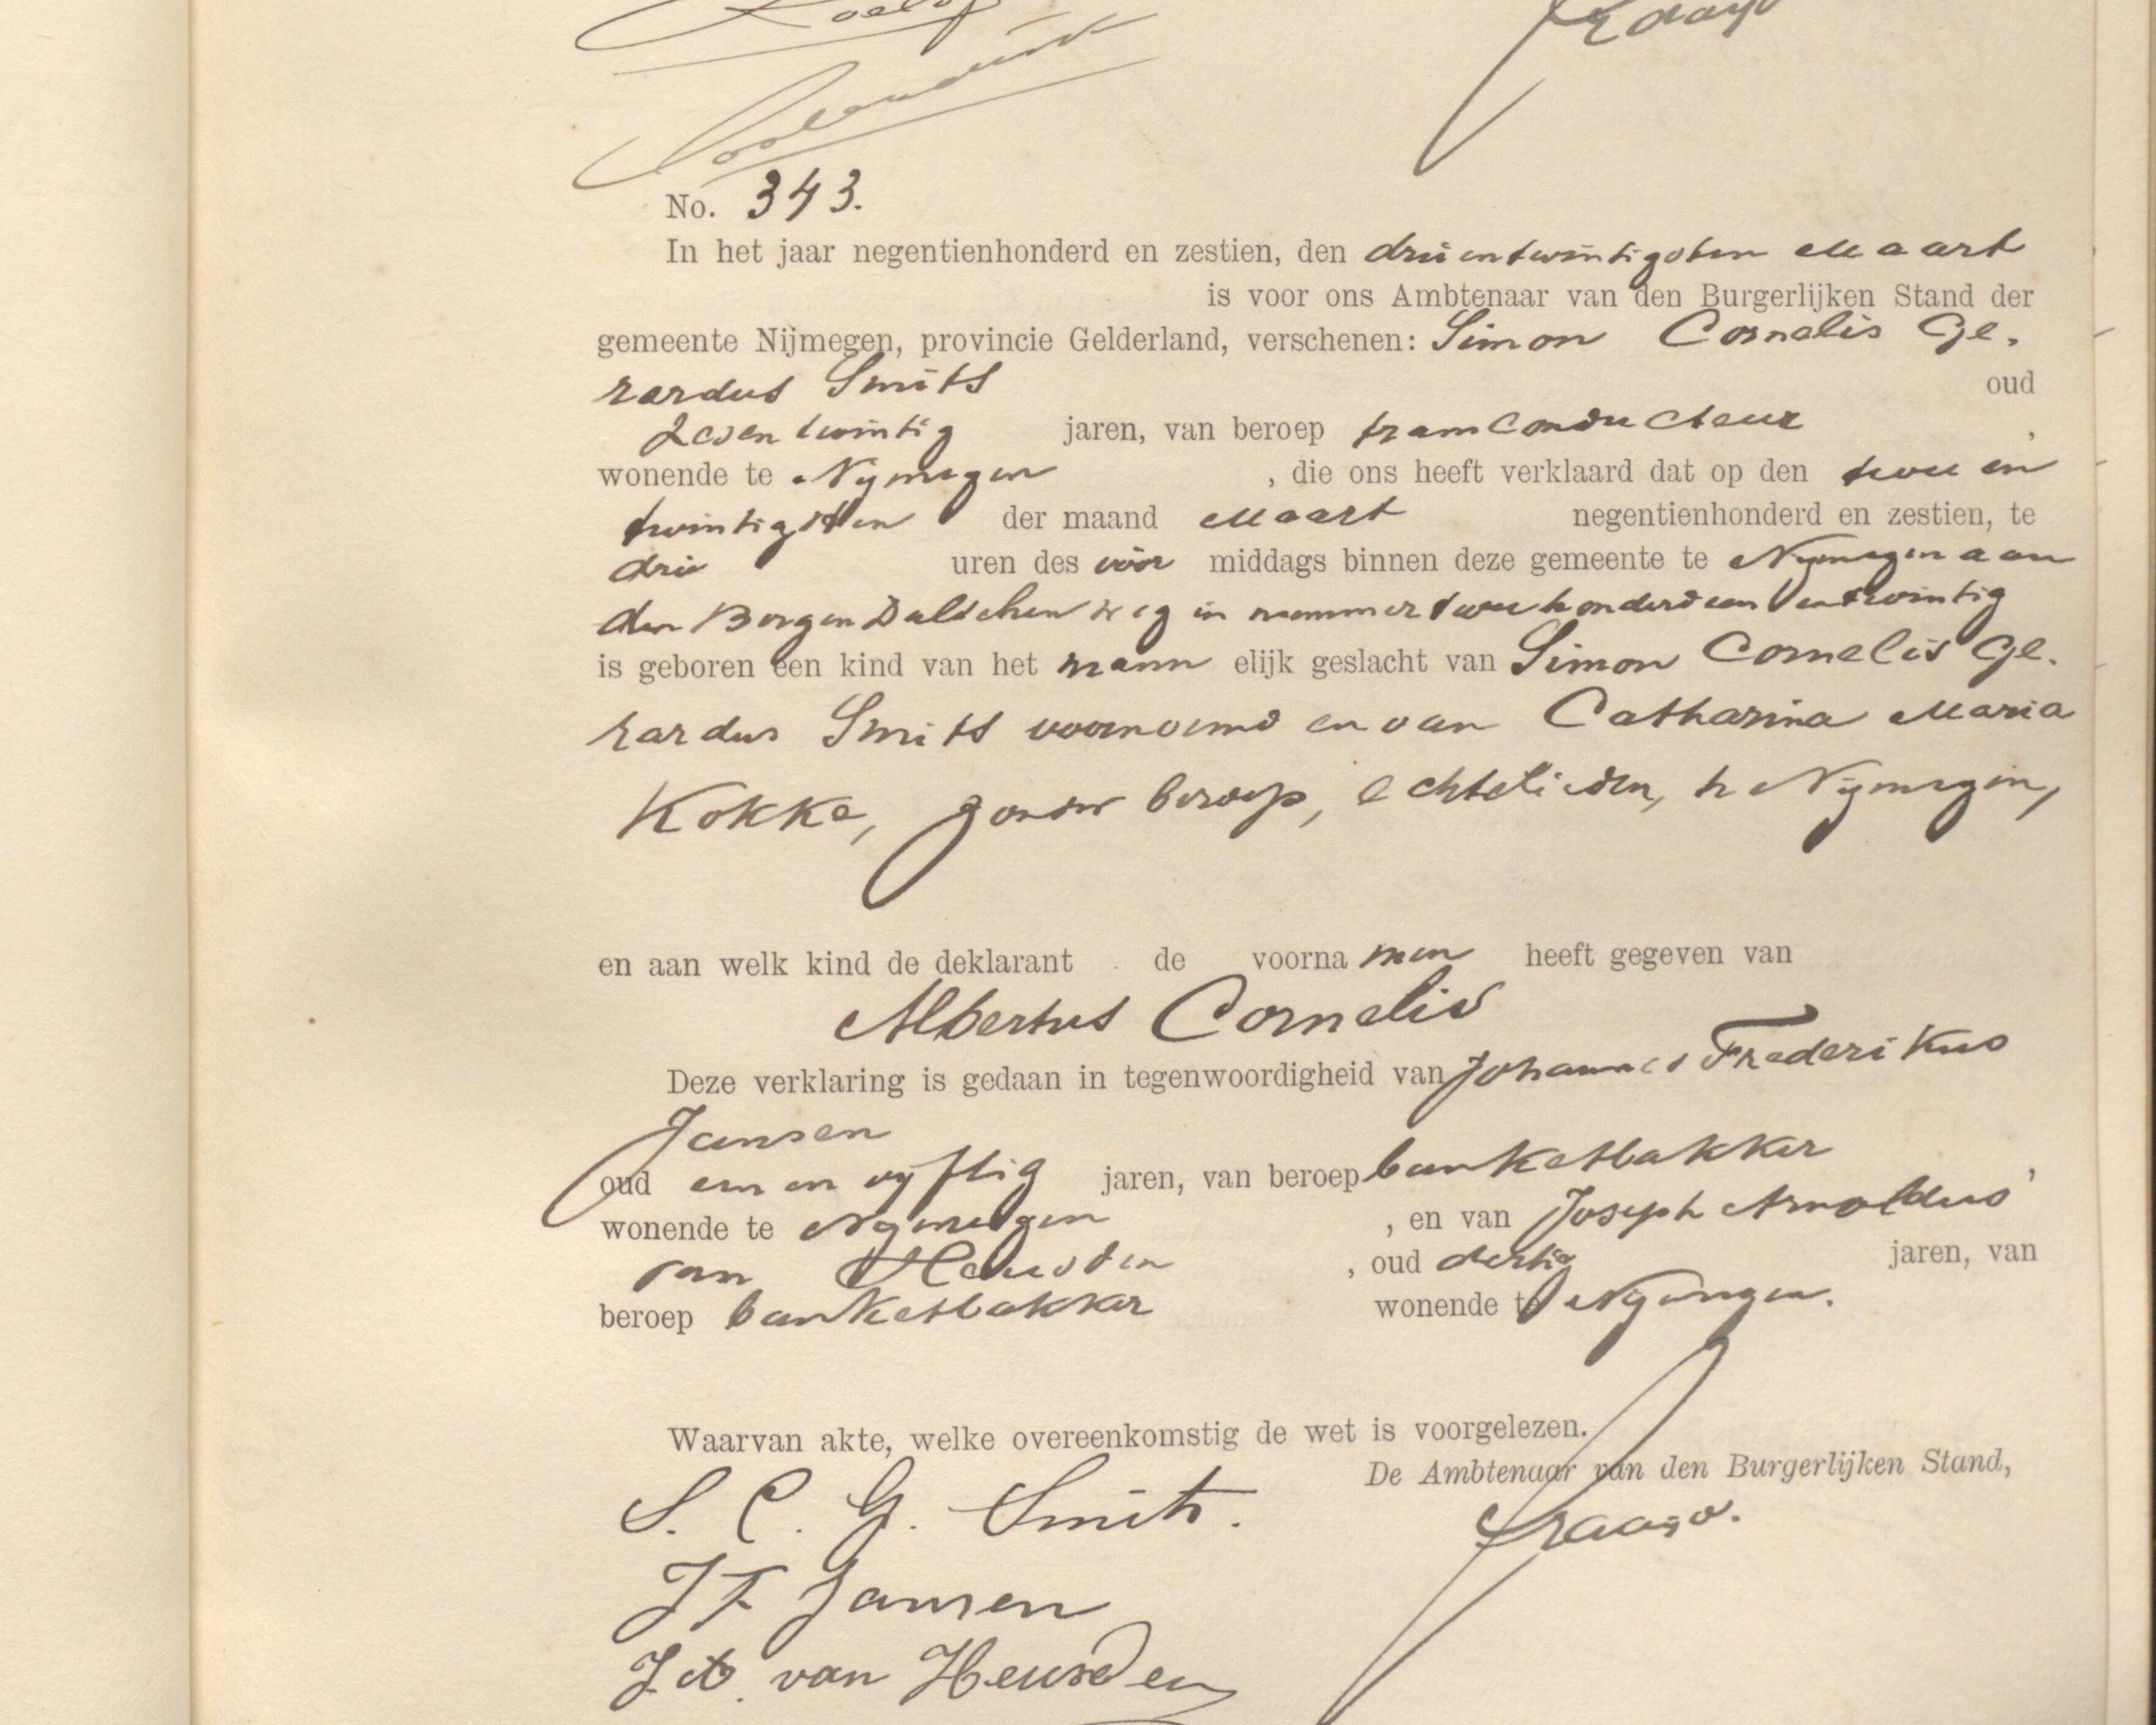 No. 343.
In het jaar negentienhonderd en zestien, den drieentwintigsten Maart
is voor ons Ambtenaar van den Burgerlijken Stand der
gemeente Nijmegen, provincie Gelderland, verschenen: Simon Cornelis Ge-
rardus Smits oud
jaren, van beroep tramconducteur ,
wonende te Nijmegen , die ons heeft verklaard dat op den twee en
twintigsten der maand Maart negentienhonderd en zestien, te
drie uren des voor middags binnen deze gemeente te Nijmegen aan
den Bergendalschen weg in nummer tweehonderdeenentwintig
is geboren een kind van het mann elijk geslacht van Simon Cornelis Ge-
rardus Smits voornoemd en van Catharina Maria
Kokke, zonder beroep, echtelieden, te Nijmegen,
en aan welk kind de deklarant de voorna men heeft gegeven van
Albertus Cornelis
Deze verklaring is gedaan in tegenwoordigheid van Johannes Frederikus
Jansen
oud een en vijftig jaren, van beroep banketbakker ,
wonende te Nijmegen , en van Joseph Arnoldus
van Heusden , oud dertig jaren, van
beroep banketbakker wonende te Nijmegen.
Waarvan akte, welke overeenkomstig de wet is voorgelezen.
De Ambtenaar van den Burgerlijken Stand,
S. C. G. Smits.
J F Jansen
J. A. van Heusden